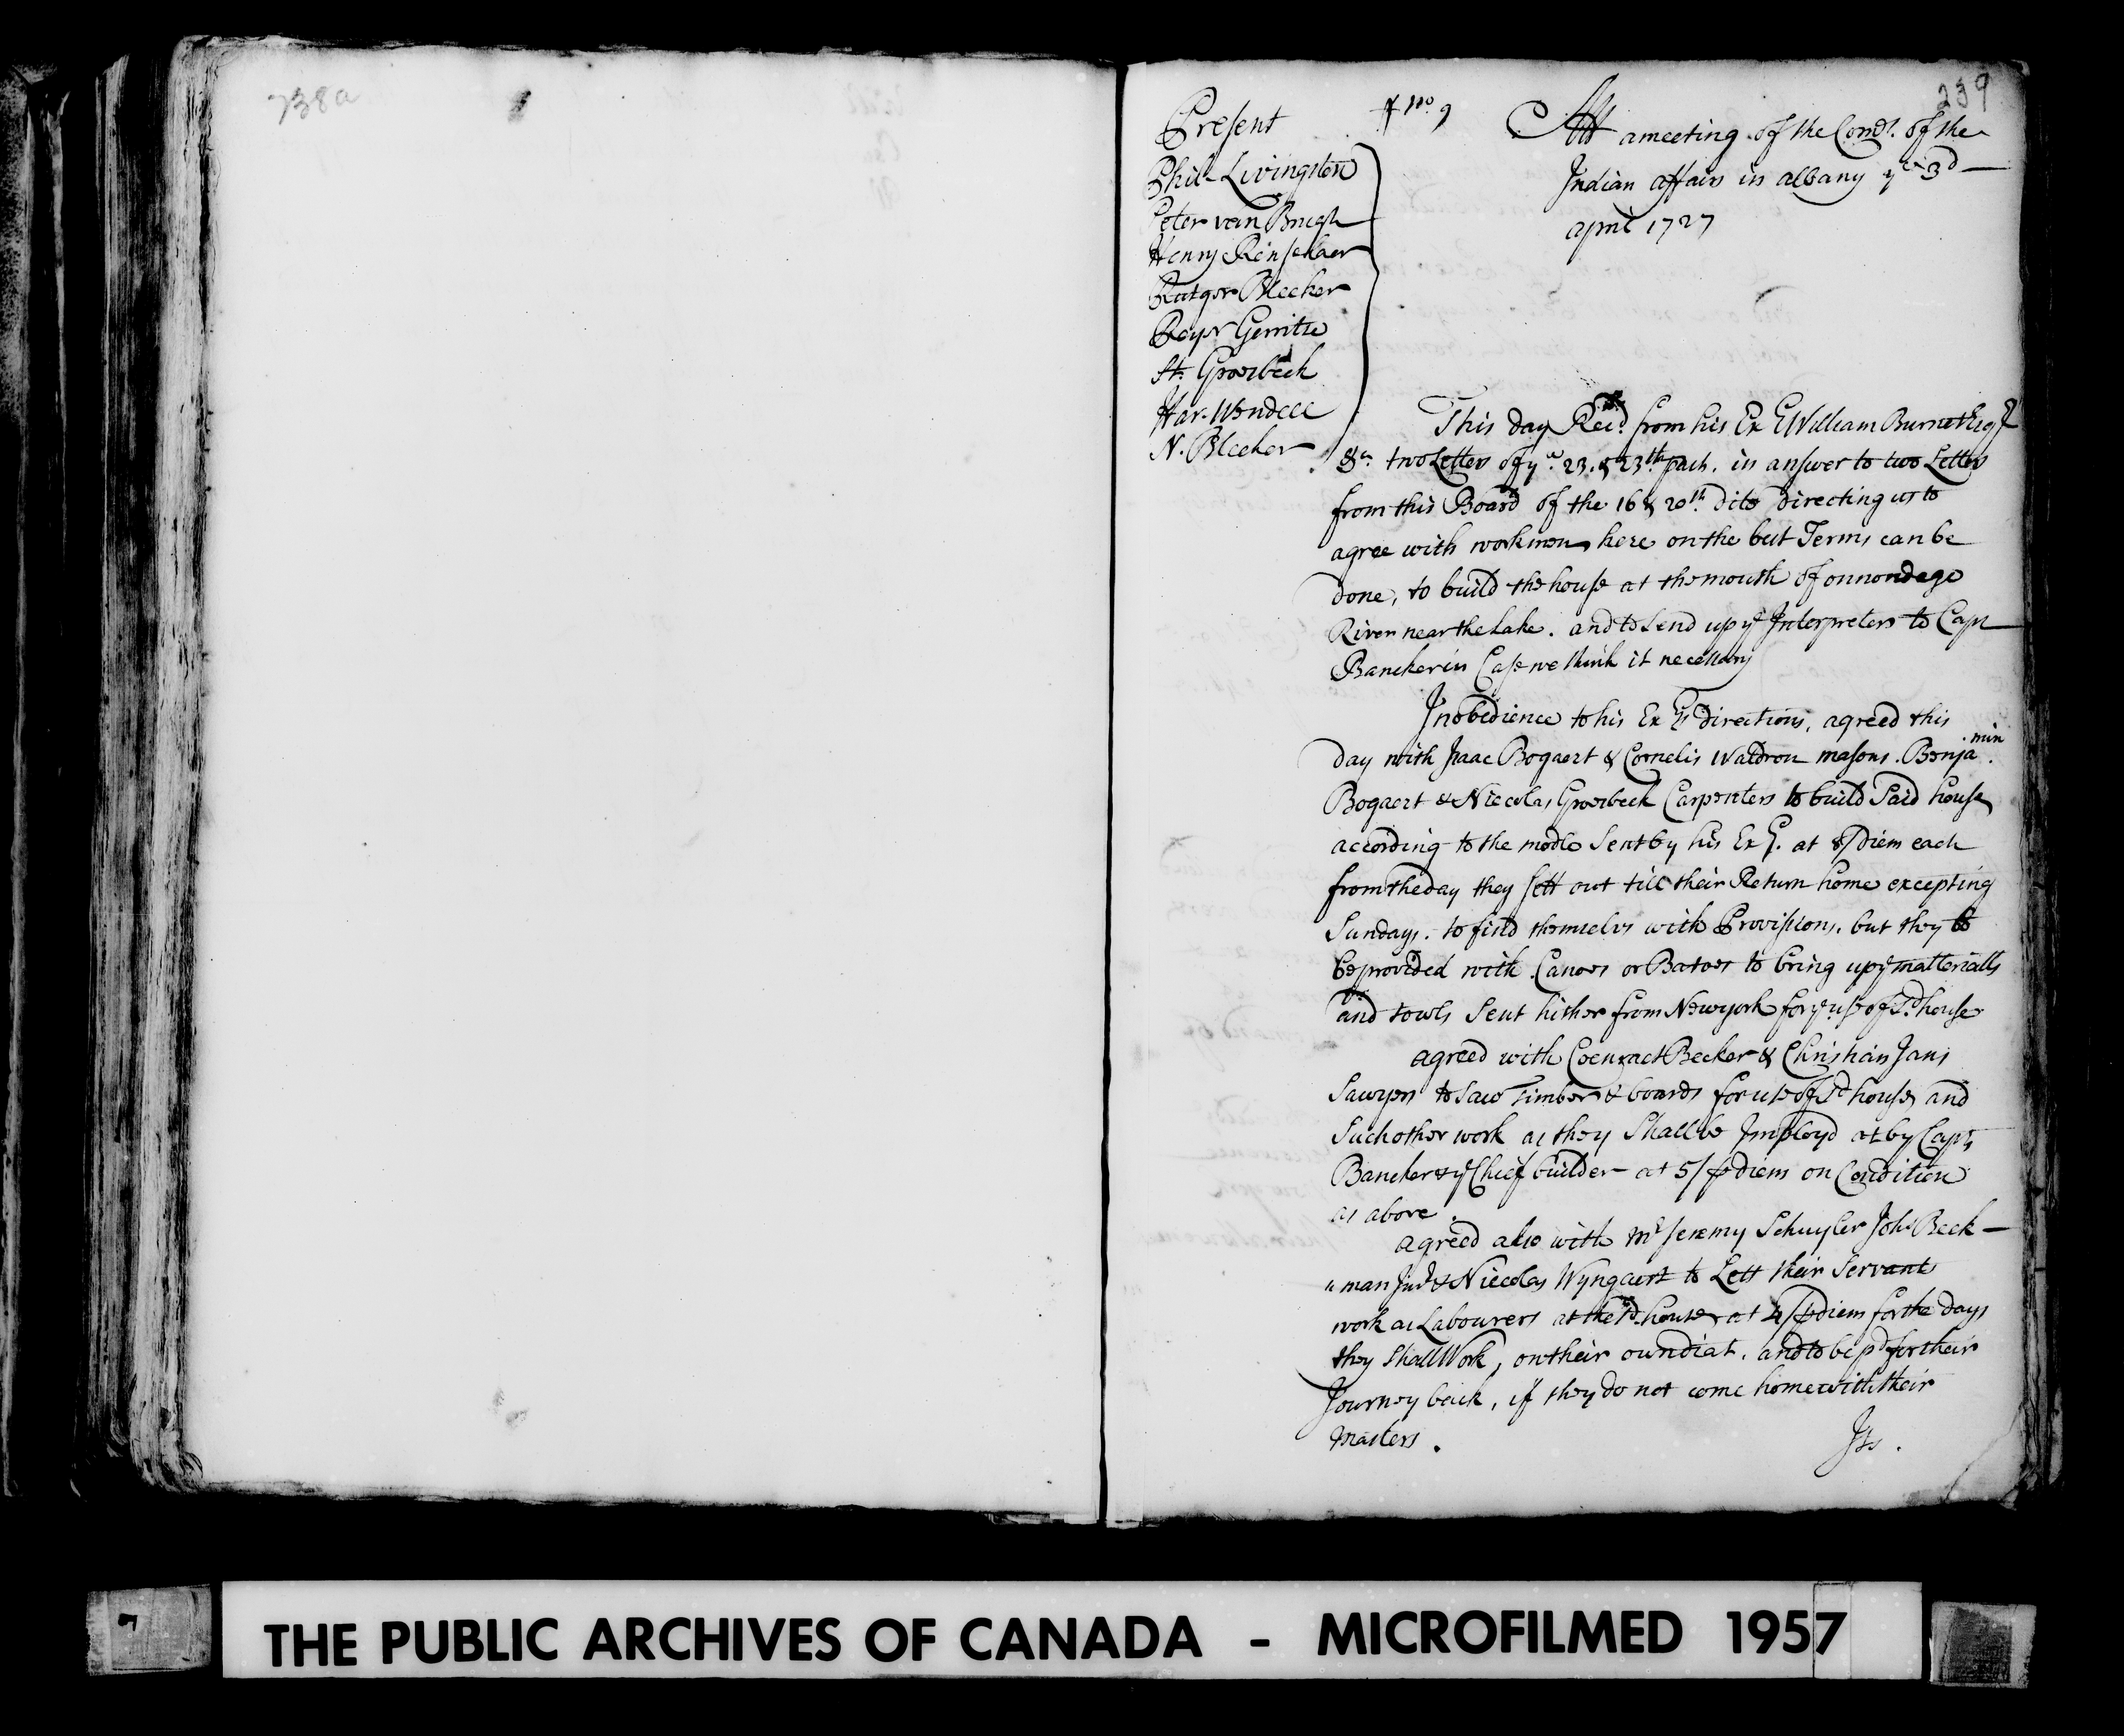 738a
239
Present
Phil. Livingston
Peter van Brugh
Henry Renselaer
Rutger Bleeker
Reyr Gerritse
St. Groesbeck
Har. Wendell
N. Bleeker
No. 9
Att a meeting of the Comrs. of the
Indian affairs in albany ye 3d
april 1727
This day Recd. from his Ex William Burnet Esqr
&c. two Letters of ye. 23. & 23th past. in answer to two Letters
from this Board of the 16 & 20th. dito Directing us to
agree with workmen here on the best Terms can be
done, to build the house at the mouth of onnondage
River near the Lake. and to Send up ye Interpreters to Capt
Bancker in Case we think it necessary
In obedience to his Exys directions, agreed this
day with Isaac Bogaert & Cornelis Waldron masons. Benjamin
Bogaert & Niecolas Groesbeck Carpenters to build Said house
according to the modle Sent by his Exy. at 8/ diem each
from the day they Sett out till their Return home excepting
Sundays. to find themselvs with Provissions. but they to
be provided with Canoes or Batoes to bring up ye matterialls
and towls Sent hither from Newyork for ye use of sd. house
agreed with Coenraet Becker & Christian Jans
Sawyers to Saw Timber & boards for use of sd house, and
Such other work as they Shall be Imployd at by Capt
Bancker & ye Chief builder at 5/ p diem on Condition
as above.
agreed also with Mr Jeremy Schuyler Johs Beek-
"man Junr & Niecolas Wyngaert to Lett their Servants
work as Labourers at the sd. house at 4/ p diem for the days
they Shall Work, on their own diat. and to be pd for their
Journey back, if they do not come home with their
Masters.
Its.
THE PUBLIC ARCHIVES OF CANADA - MICROFILMED 1957